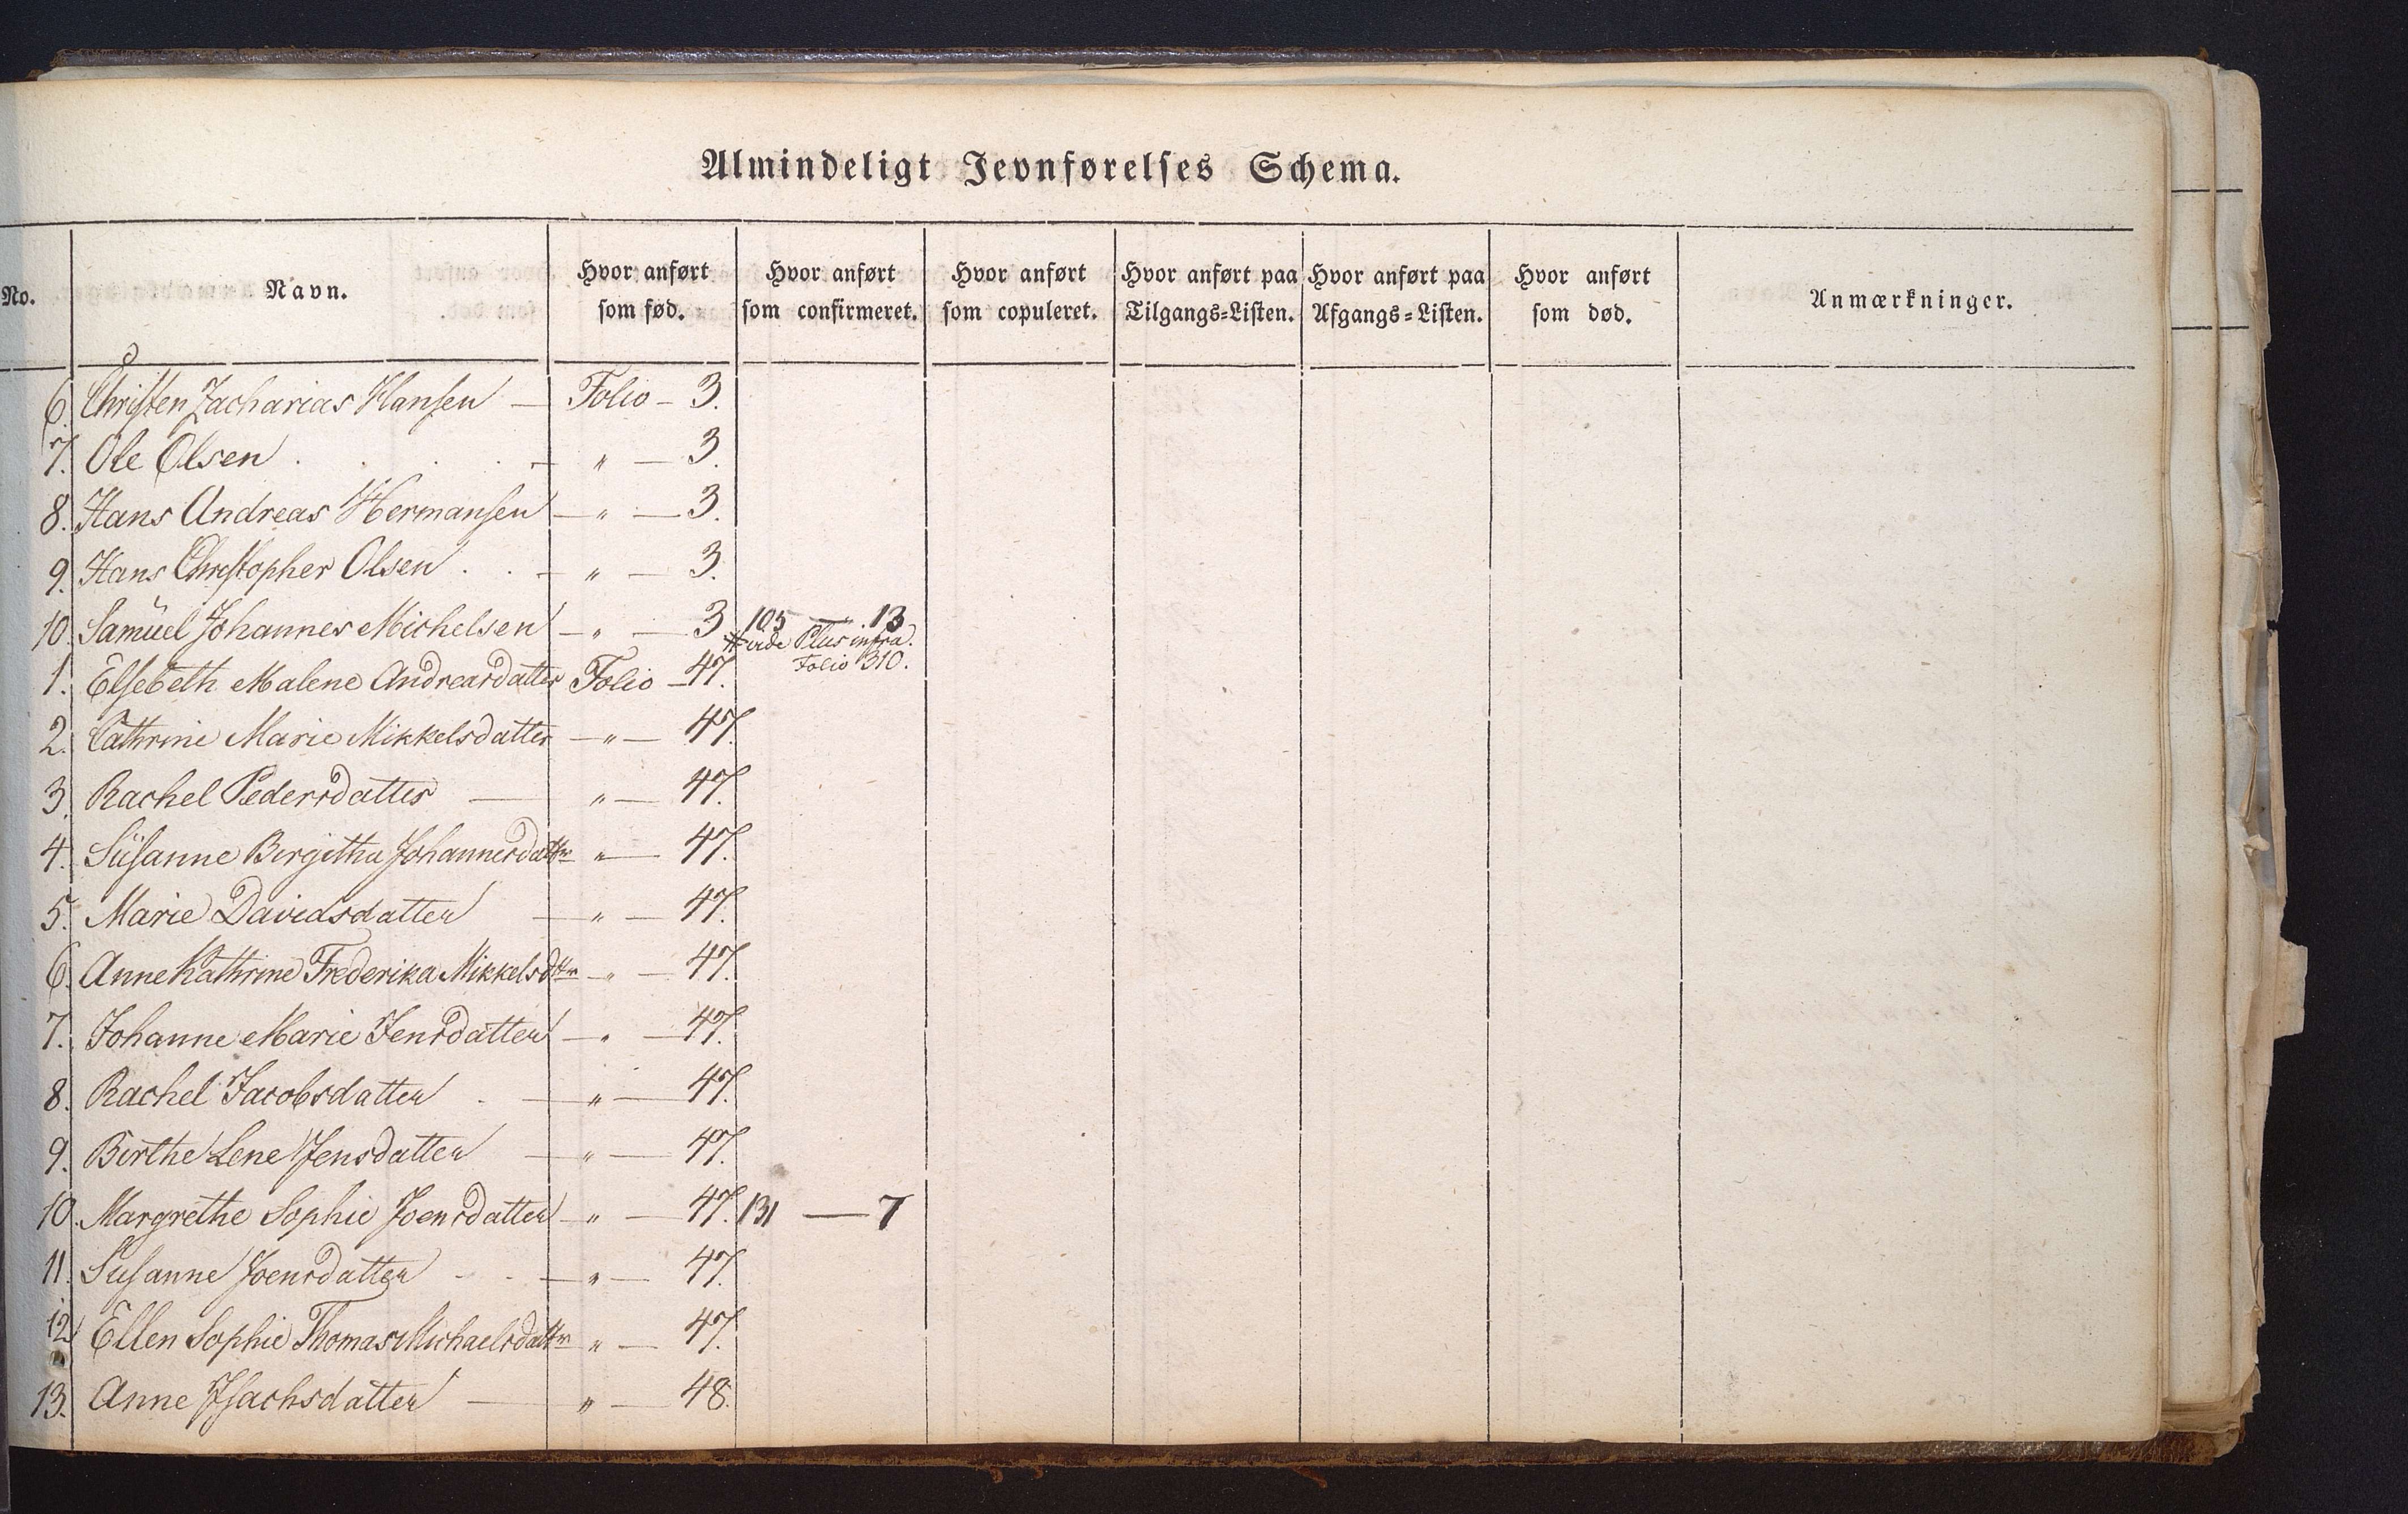 Almindeligt Jevnførelses Schema.
No. Navn. Hvor anført som fød. Hvor anført som confirmeret. Hvor anført som copuleret. Hvor anført paa Tilgangs=Listen. Hvor anført paa Afgangs=Listen. Hvor anført som død. Anmærkninger.
6. Christen Zacharias Hansen — Folio — 3.
7. Ole Olsen . . . . — " — 3.
8. Hans Andreas Hermansen — " — 3.
9. Hans Christopher Olsen . . — " — 3.
10. Samuel Johannes Michelsen — " — 3 105 — 13
vide Plus infra.
Folio 310.
1. Elsebeth Malene Andreasdatter Folio — 47.
2. Cathrine Marie Mikkelsdatter — " — 47.
3. Rachel Pedersdatter — " — 47.
4. Susanne Birgitha Johannesdattr " — 47.
5. Marie Davidsdatter — " — 47.
6. Anne Kathrine Frederika Mikkelsdttr — " — 47.
7. Johanne Marie Jensdatter — " — 47.
8. Rachel Jacobsdatter . — " — 47.
9. Birthe Lene Jensdatter — " — 47.
10. Margrethe Sophie Joensdatter — " — 47. 131 — 7
11. Susanne Joensdatter - - — " — 47.
12. Ellen Sophie Thomas Michaelsdattr " — 47.
13. Anne Isachsdatter — " — 48.